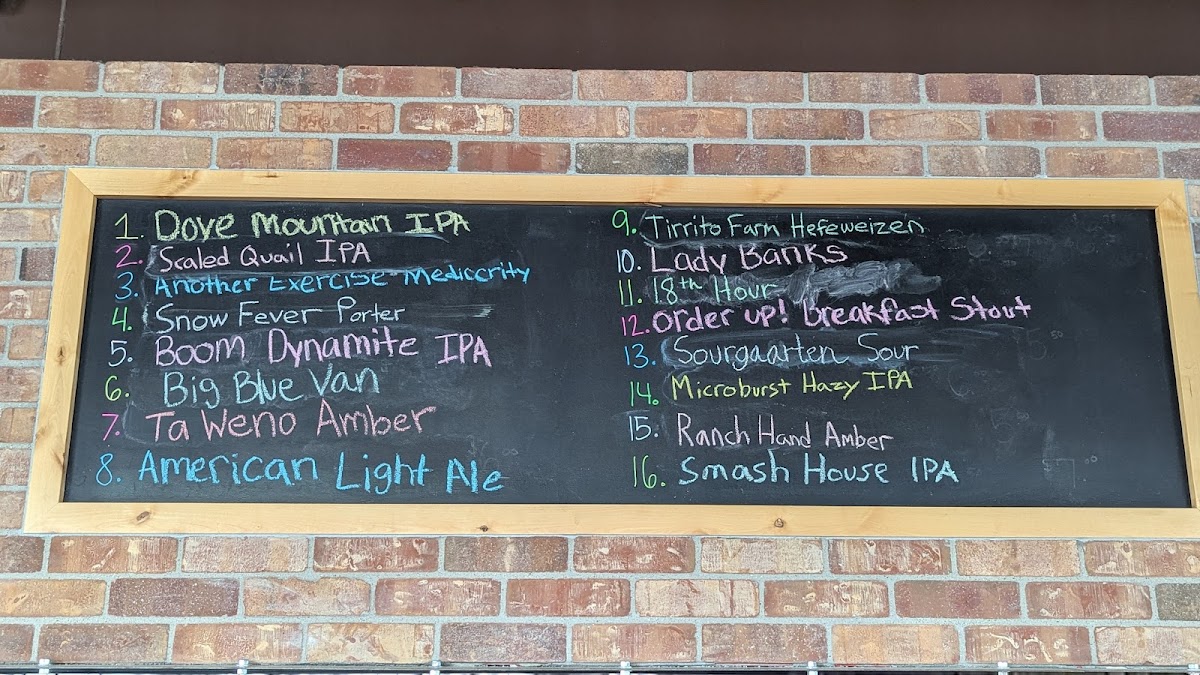 1. Dove Mountain IPA
2. Scaled Quail IPA
3. Another Exercise Mediocrity
4. Snow Fever Porter
5. Boom Dynamite IPA
6. Big Blue Van
7. Ta Weno Amber
8. American Light Ale
9. Tirrito Farm Hefeweizen
10. Lady Banks
11. 18th Hour
12. Order up! Breakfast Stout
13. Sourgaarten Sour
14. Microburst Hazy IPA
15. Ranch Hand Amber
16. Smash House IPA